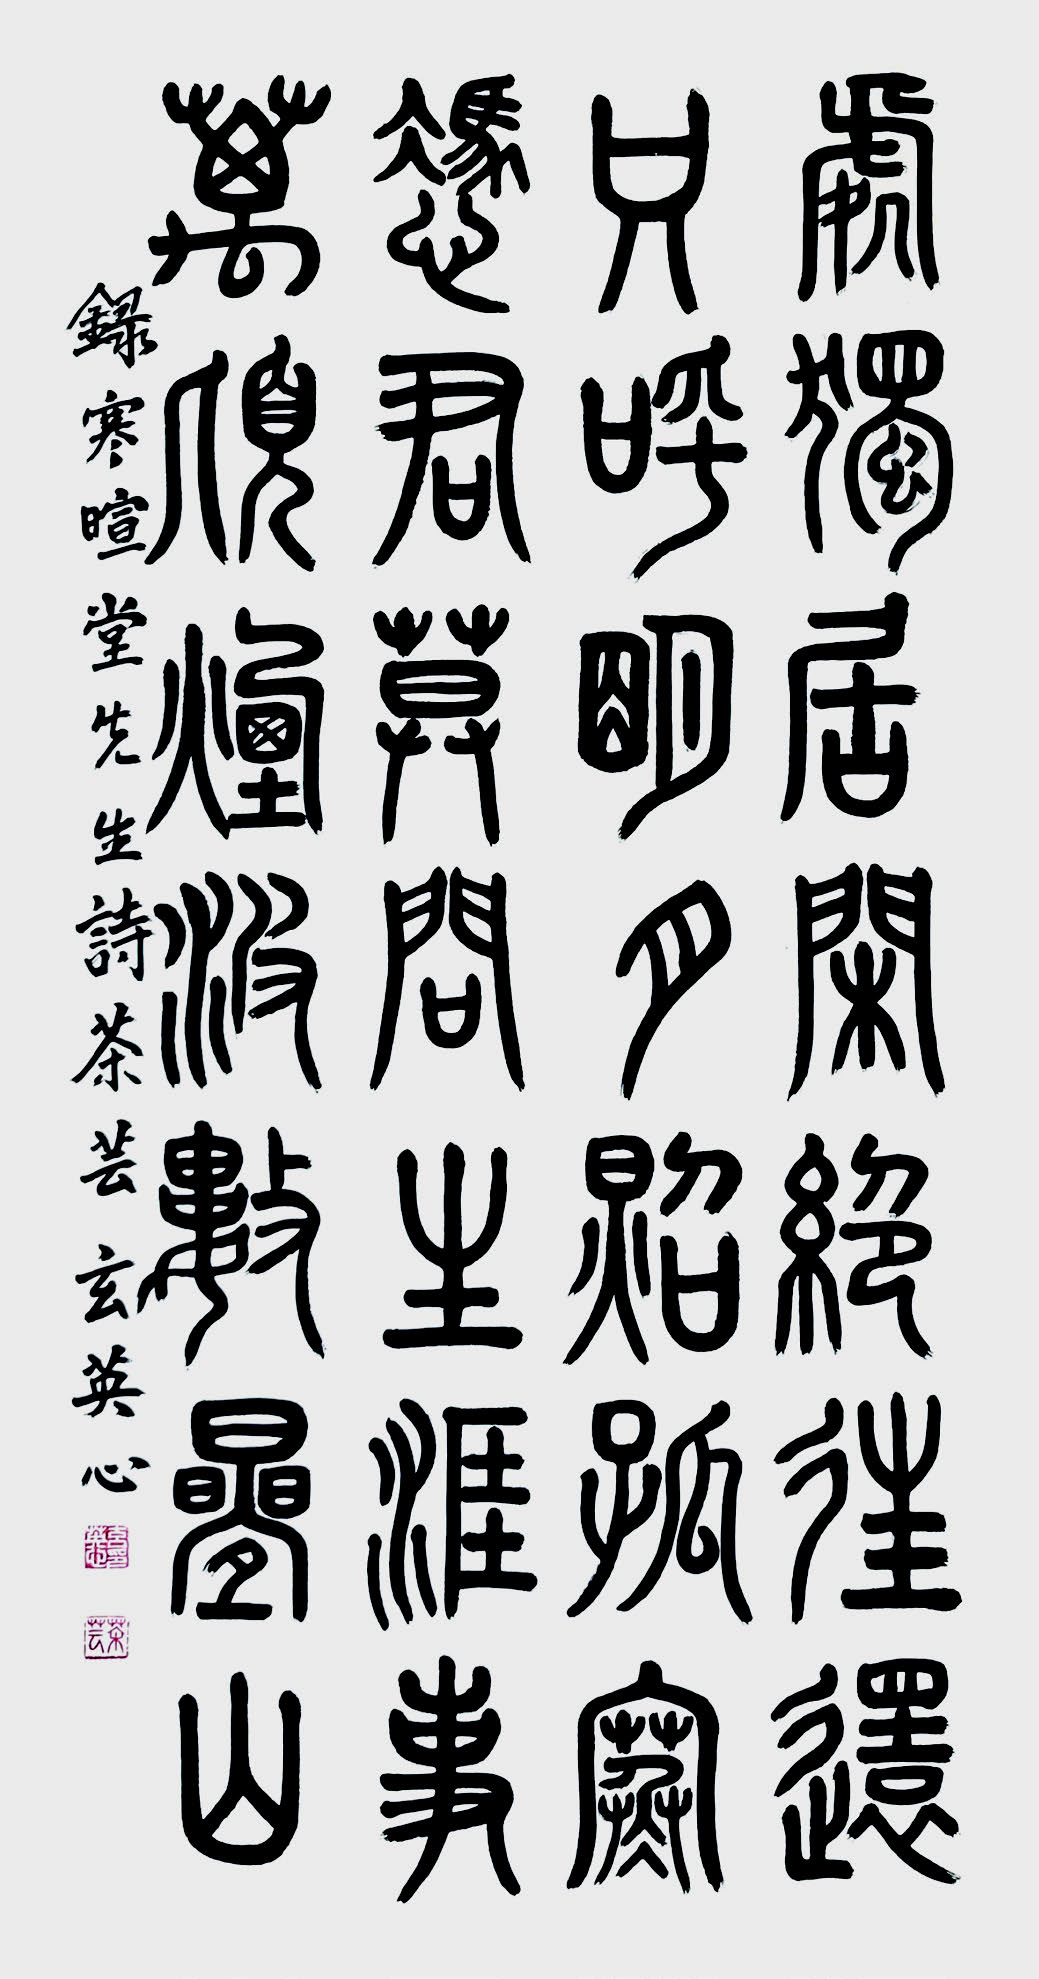 處獨居閑絶往還
只呼明月照孤寒
憑君莫問生涯事
萬頃煙波數疊山
錄寒暄堂先生詩茶芸玄英心
茶芸